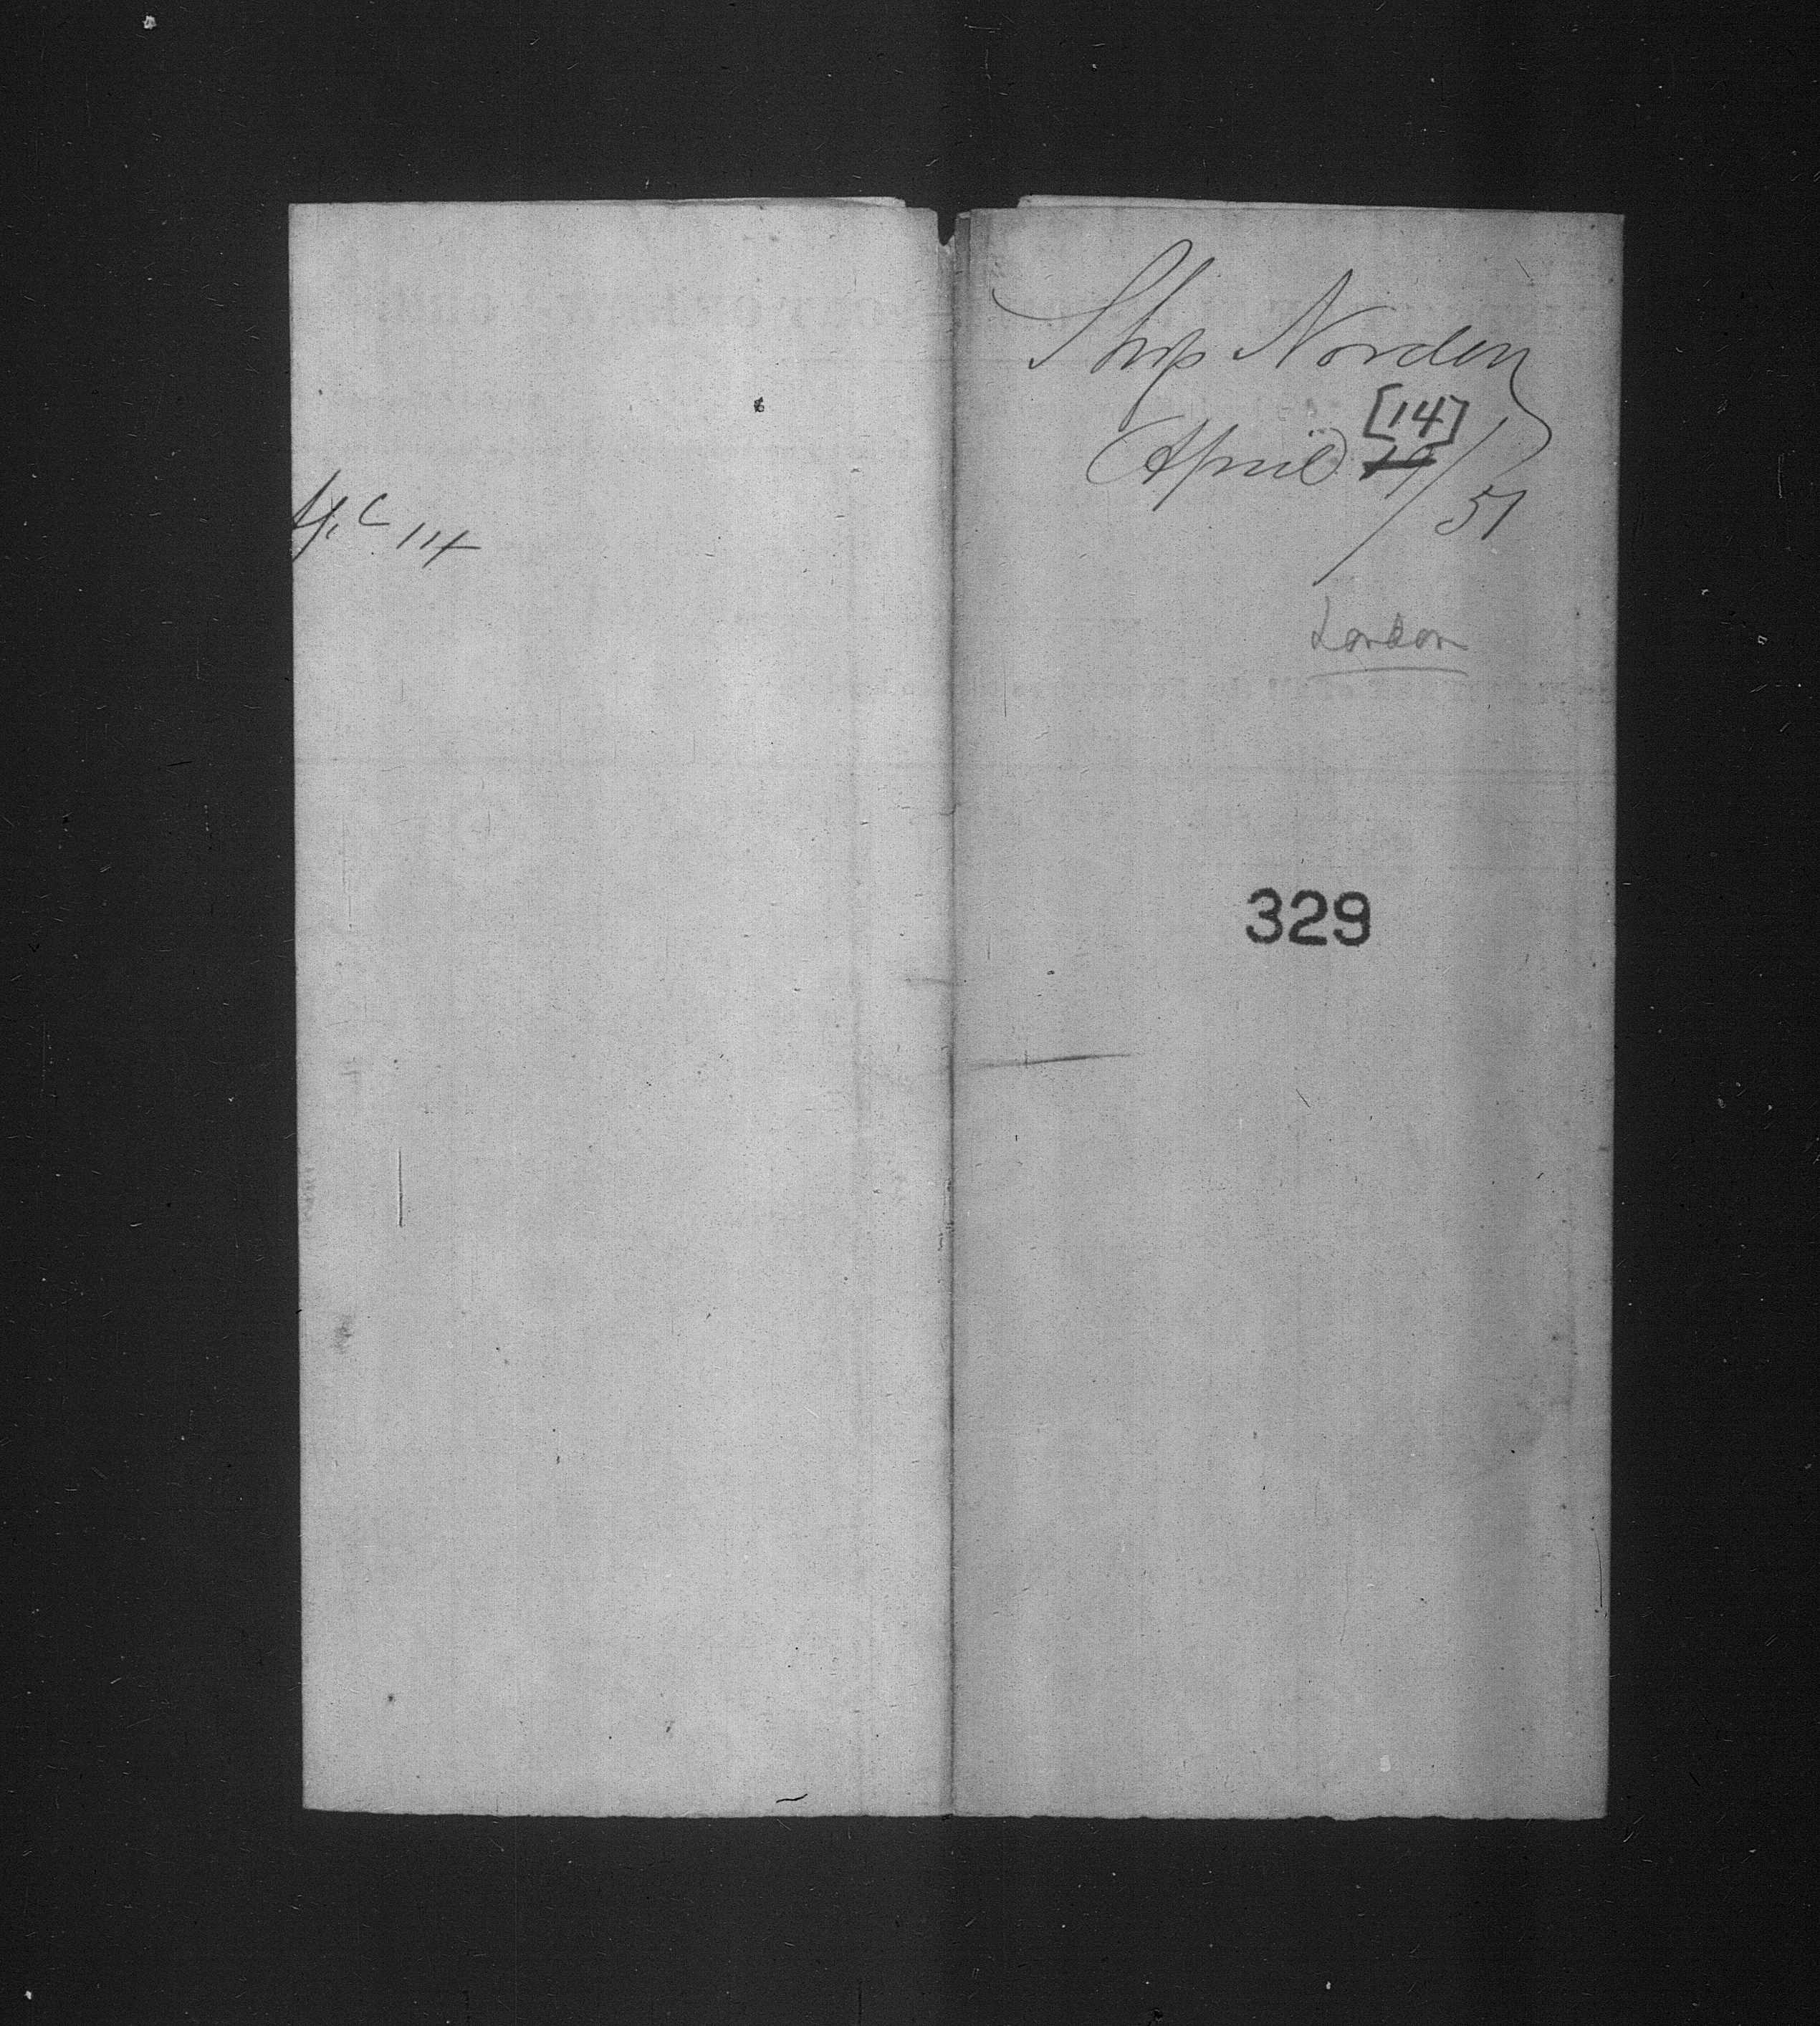 Ship Norden
April [14]/51
London
329